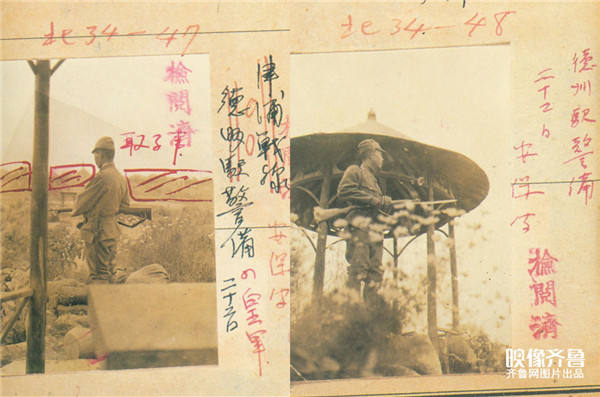 北34-47
検閲済
取ル事
津浦戦線
徳州駅警備の皇軍
二十二日
安保特
北34-48
徳州駅警備
二十二日
検閲済
映像齐鲁
齐鲁网图片出品